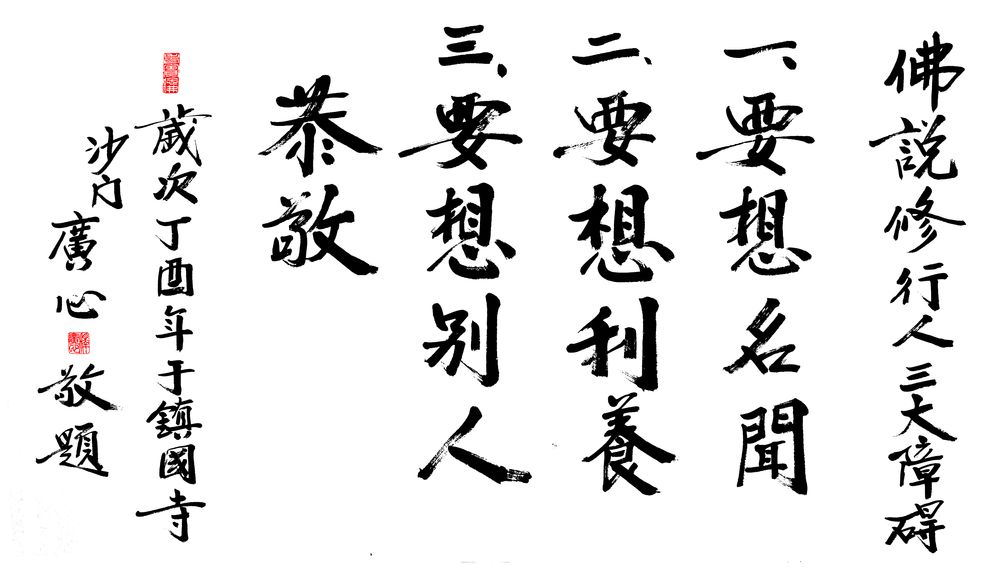 佛説修行人三大障碍
一、要想名聞
二、要想利養
三、要想别人
恭敬
歲次丁酉年于鎮國寺
沙门廣心敬題